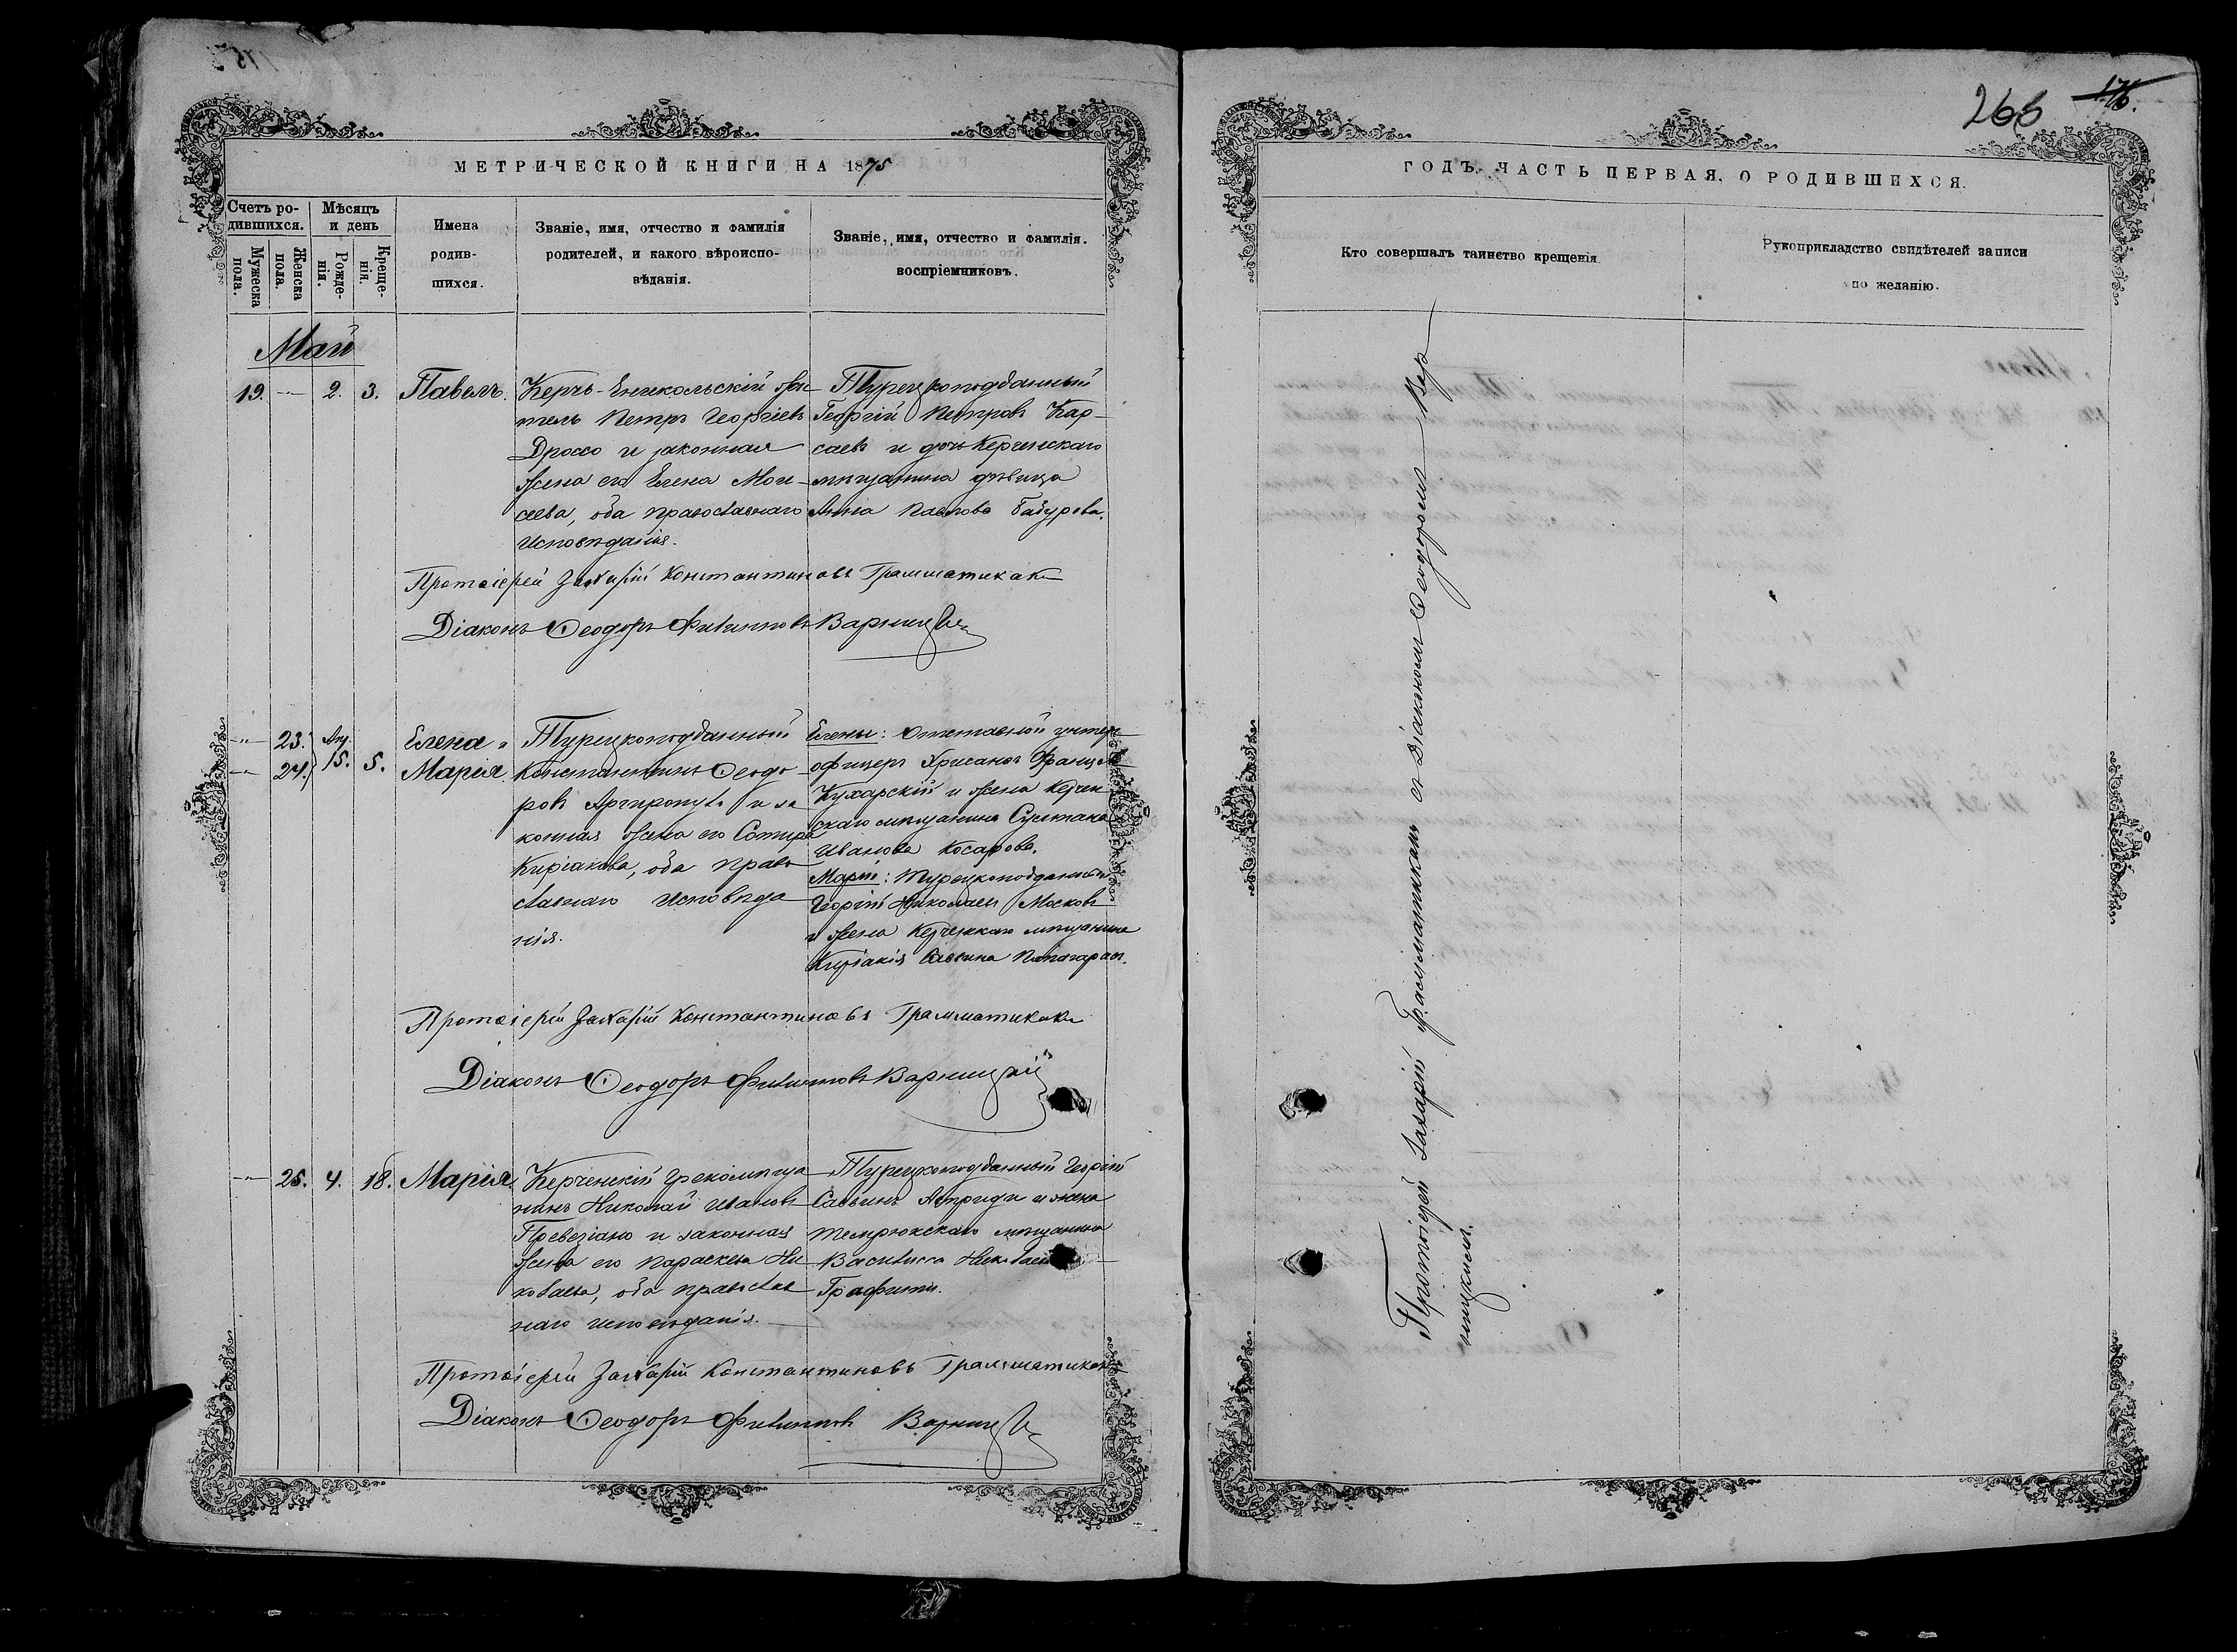 МЕТРИЧЕСКОЙ КНИГИ НА 1875
Счетъ ро-
дившихся.
Мѣсяцъ
и день
Мужеска
пола.
Женска
пола.
Рожде-
нія.
Креще-
нія.
Имена
родив-
шихся.
Званіе, имя, отчество и фамилія
родителей, и какого вѣроиспо-
вѣданія.
Званіе, имя, отчество и фамилія.
воспріемниковъ.
Май
19. -"- 2. 3. Павелъ.
Керчь-Еникольскій жи-
тель Петръ Георгіевъ
Дроссо и законная
жена его Елена Мои-
сеева, оба православнаго
исповѣданія.
Турецкоподданный
Георгій Петровъ Кар-
саевъ и дочь Керченскаго
мѣщанина дѣвица
Анна Павлова
Протоіерей Захарій Константиновъ Грамматикаки
Діаконъ Ѳеодоръ Филипповъ Варницкій
-"- 23.
-"- 24.
Апр.
15. 5.
Елена и
Марія.
Турецкоподданный
Константинъ Ѳеодо-
ровъ Аргиропуло и за-
конная жена его Сотира
Киріакова, оба право-
славнаго исповѣда-
нія.
Елены: Отставной унтеръ-
офицеръ Хрисанѳъ
Кухарскій и жена Керчен-
скаго мѣщанина Султана
Иванова Косарова.
Маріи: Турецкоподданный
Георгій Николаевъ Московъ
и жена Керченскаго мѣщанина
Киріакія Саввина
Протоіерей Захарій Константиновъ Грамматикаки
Діаконъ Ѳеодоръ Филипповъ Варницкій
-"- 25. 4. 18. Марія.
Керченскій грекомѣща-
нинъ Николай Ивановъ
Превезіано и законная
жена его Параскева Ни-
колаева, оба православ-
наго исповѣданія.
Турецкоподданный Георгій
Саввинъ и жена
Темрюкскаго мѣщанина
Василисса
Протоіерей Захарій Константиновъ Грамматикаки
Діаконъ Ѳеодоръ Филипповъ Варницкій
176.
268
ГОДЪ, ЧАСТЬ ПЕРВАЯ, О РОДИВШИХСЯ.
Кто совершалъ таинство крещенія.
Рукоприкладство свидѣтелей записи
по желанію.
Протоіерей Захарій Грамматикаки съ Діакономъ Ѳеодоромъ Вар-
ницкимъ.